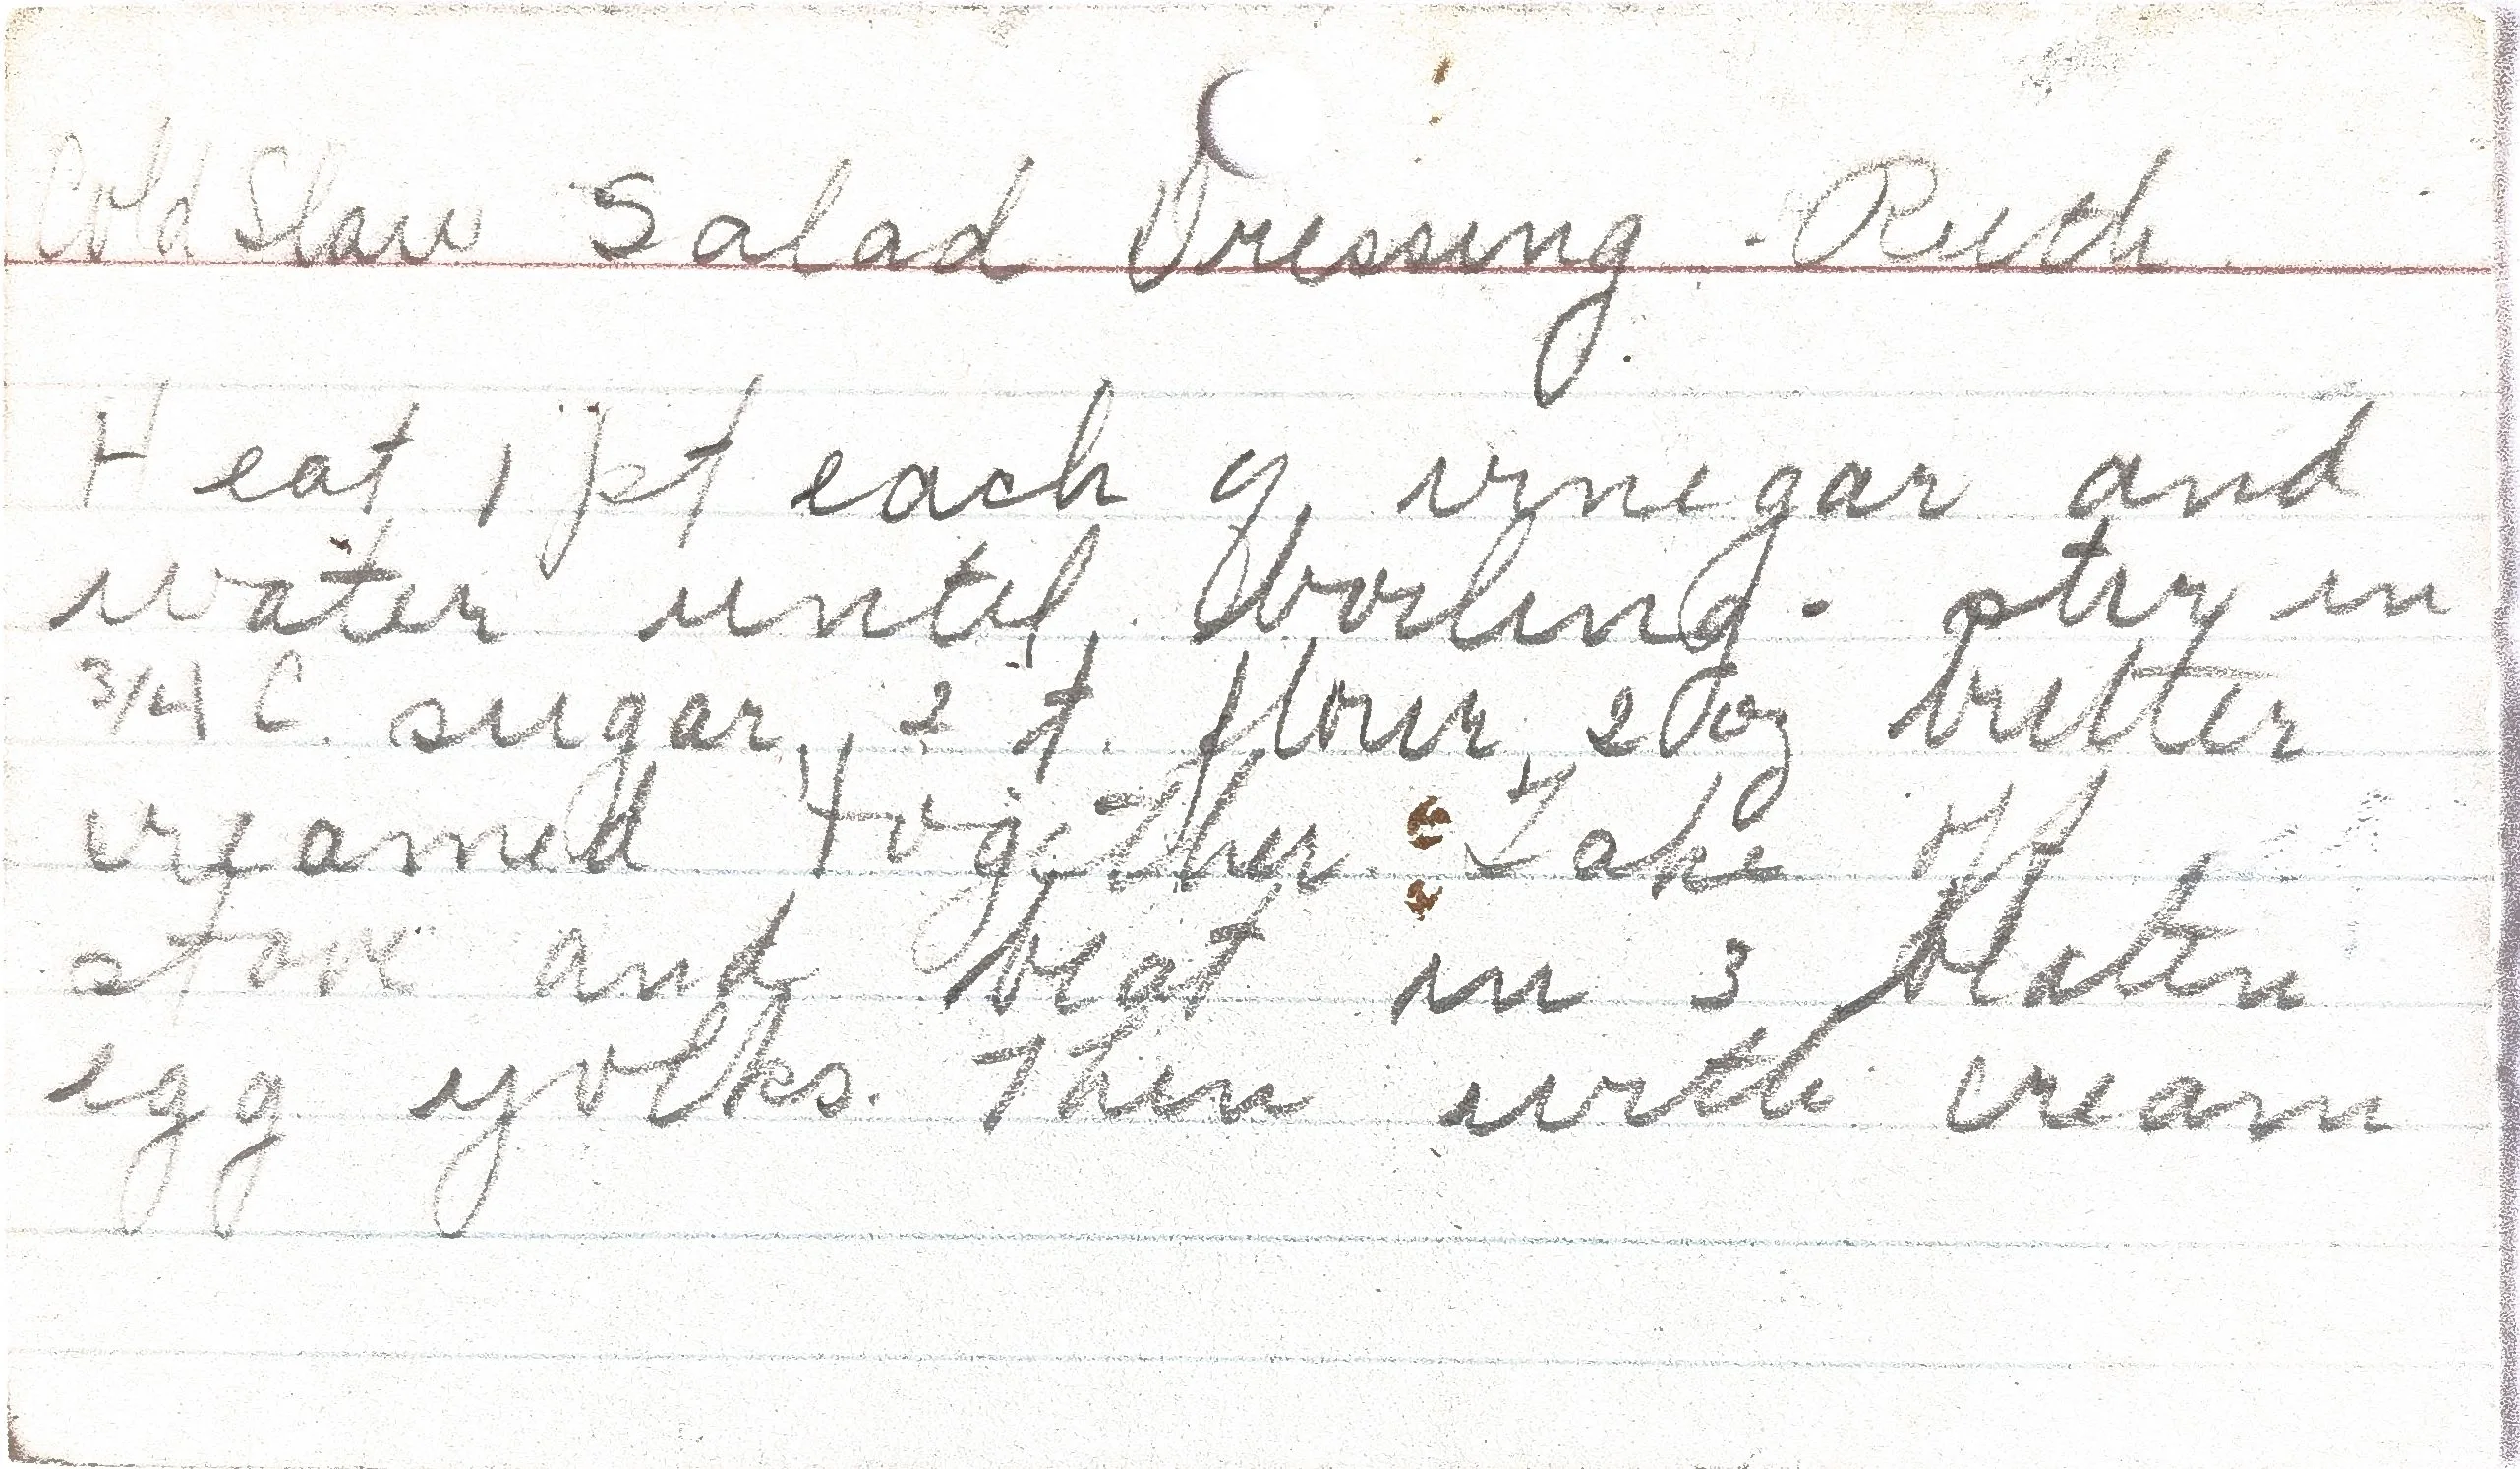 Cold Slaw Salad Dressing - Ruth
Heat 1 pt each of vinegar and
water until boiling. stir in
3/4 C. sugar, 2 t. flour, 2 oz butter
creamed together. Take off
stove and beat in 3 beaten
egg yolks. Thin with cream